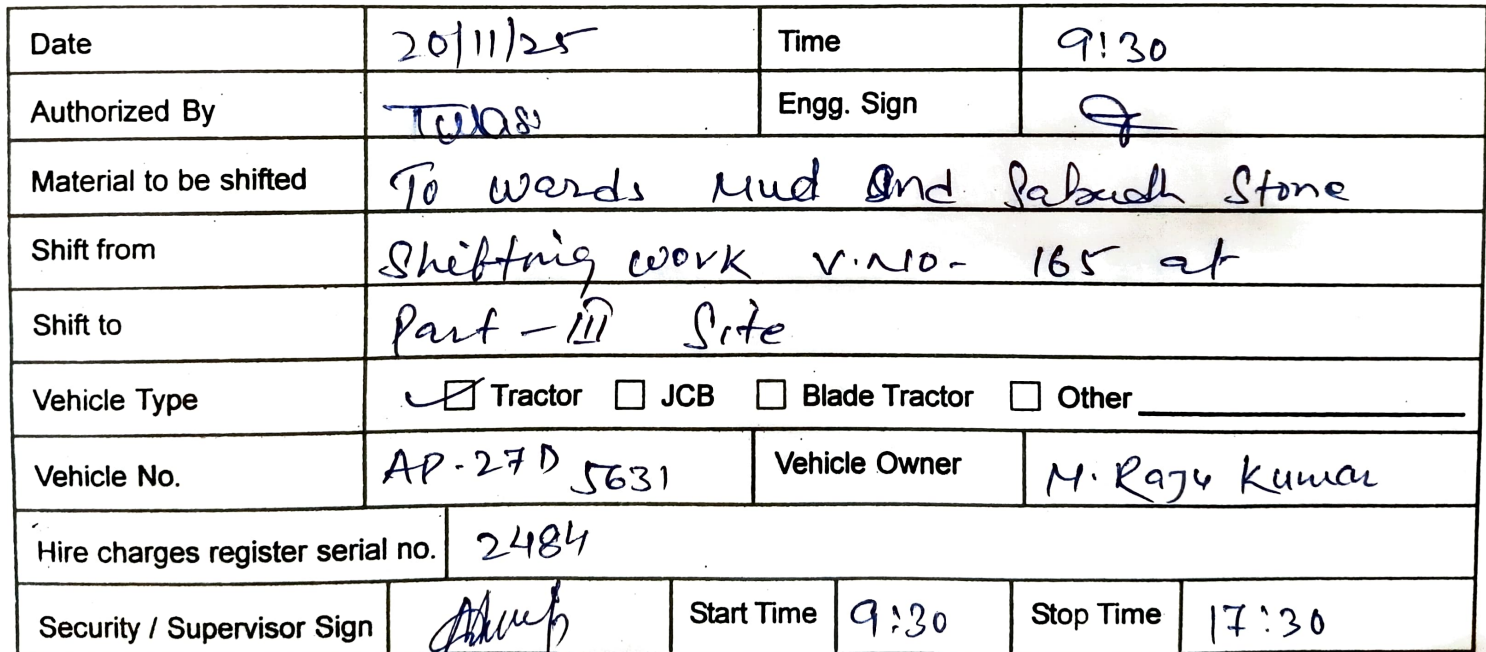 Date 20/11/25 Time 9:30
Authorized By Tulasi Engg. Sign
Material to be shifted To wards Mud and Stone
Shift from Shifting work V.No- 165 at
Shift to Part - III Site
Vehicle Type ☑ Tractor ☐ JCB ☐ Blade Tractor ☐ Other
Vehicle No. AP-27D 5631 Vehicle Owner M. Raju Kumar
Hire charges register serial no. 2484
Security / Supervisor Sign Start Time 9:30 Stop Time 17:30